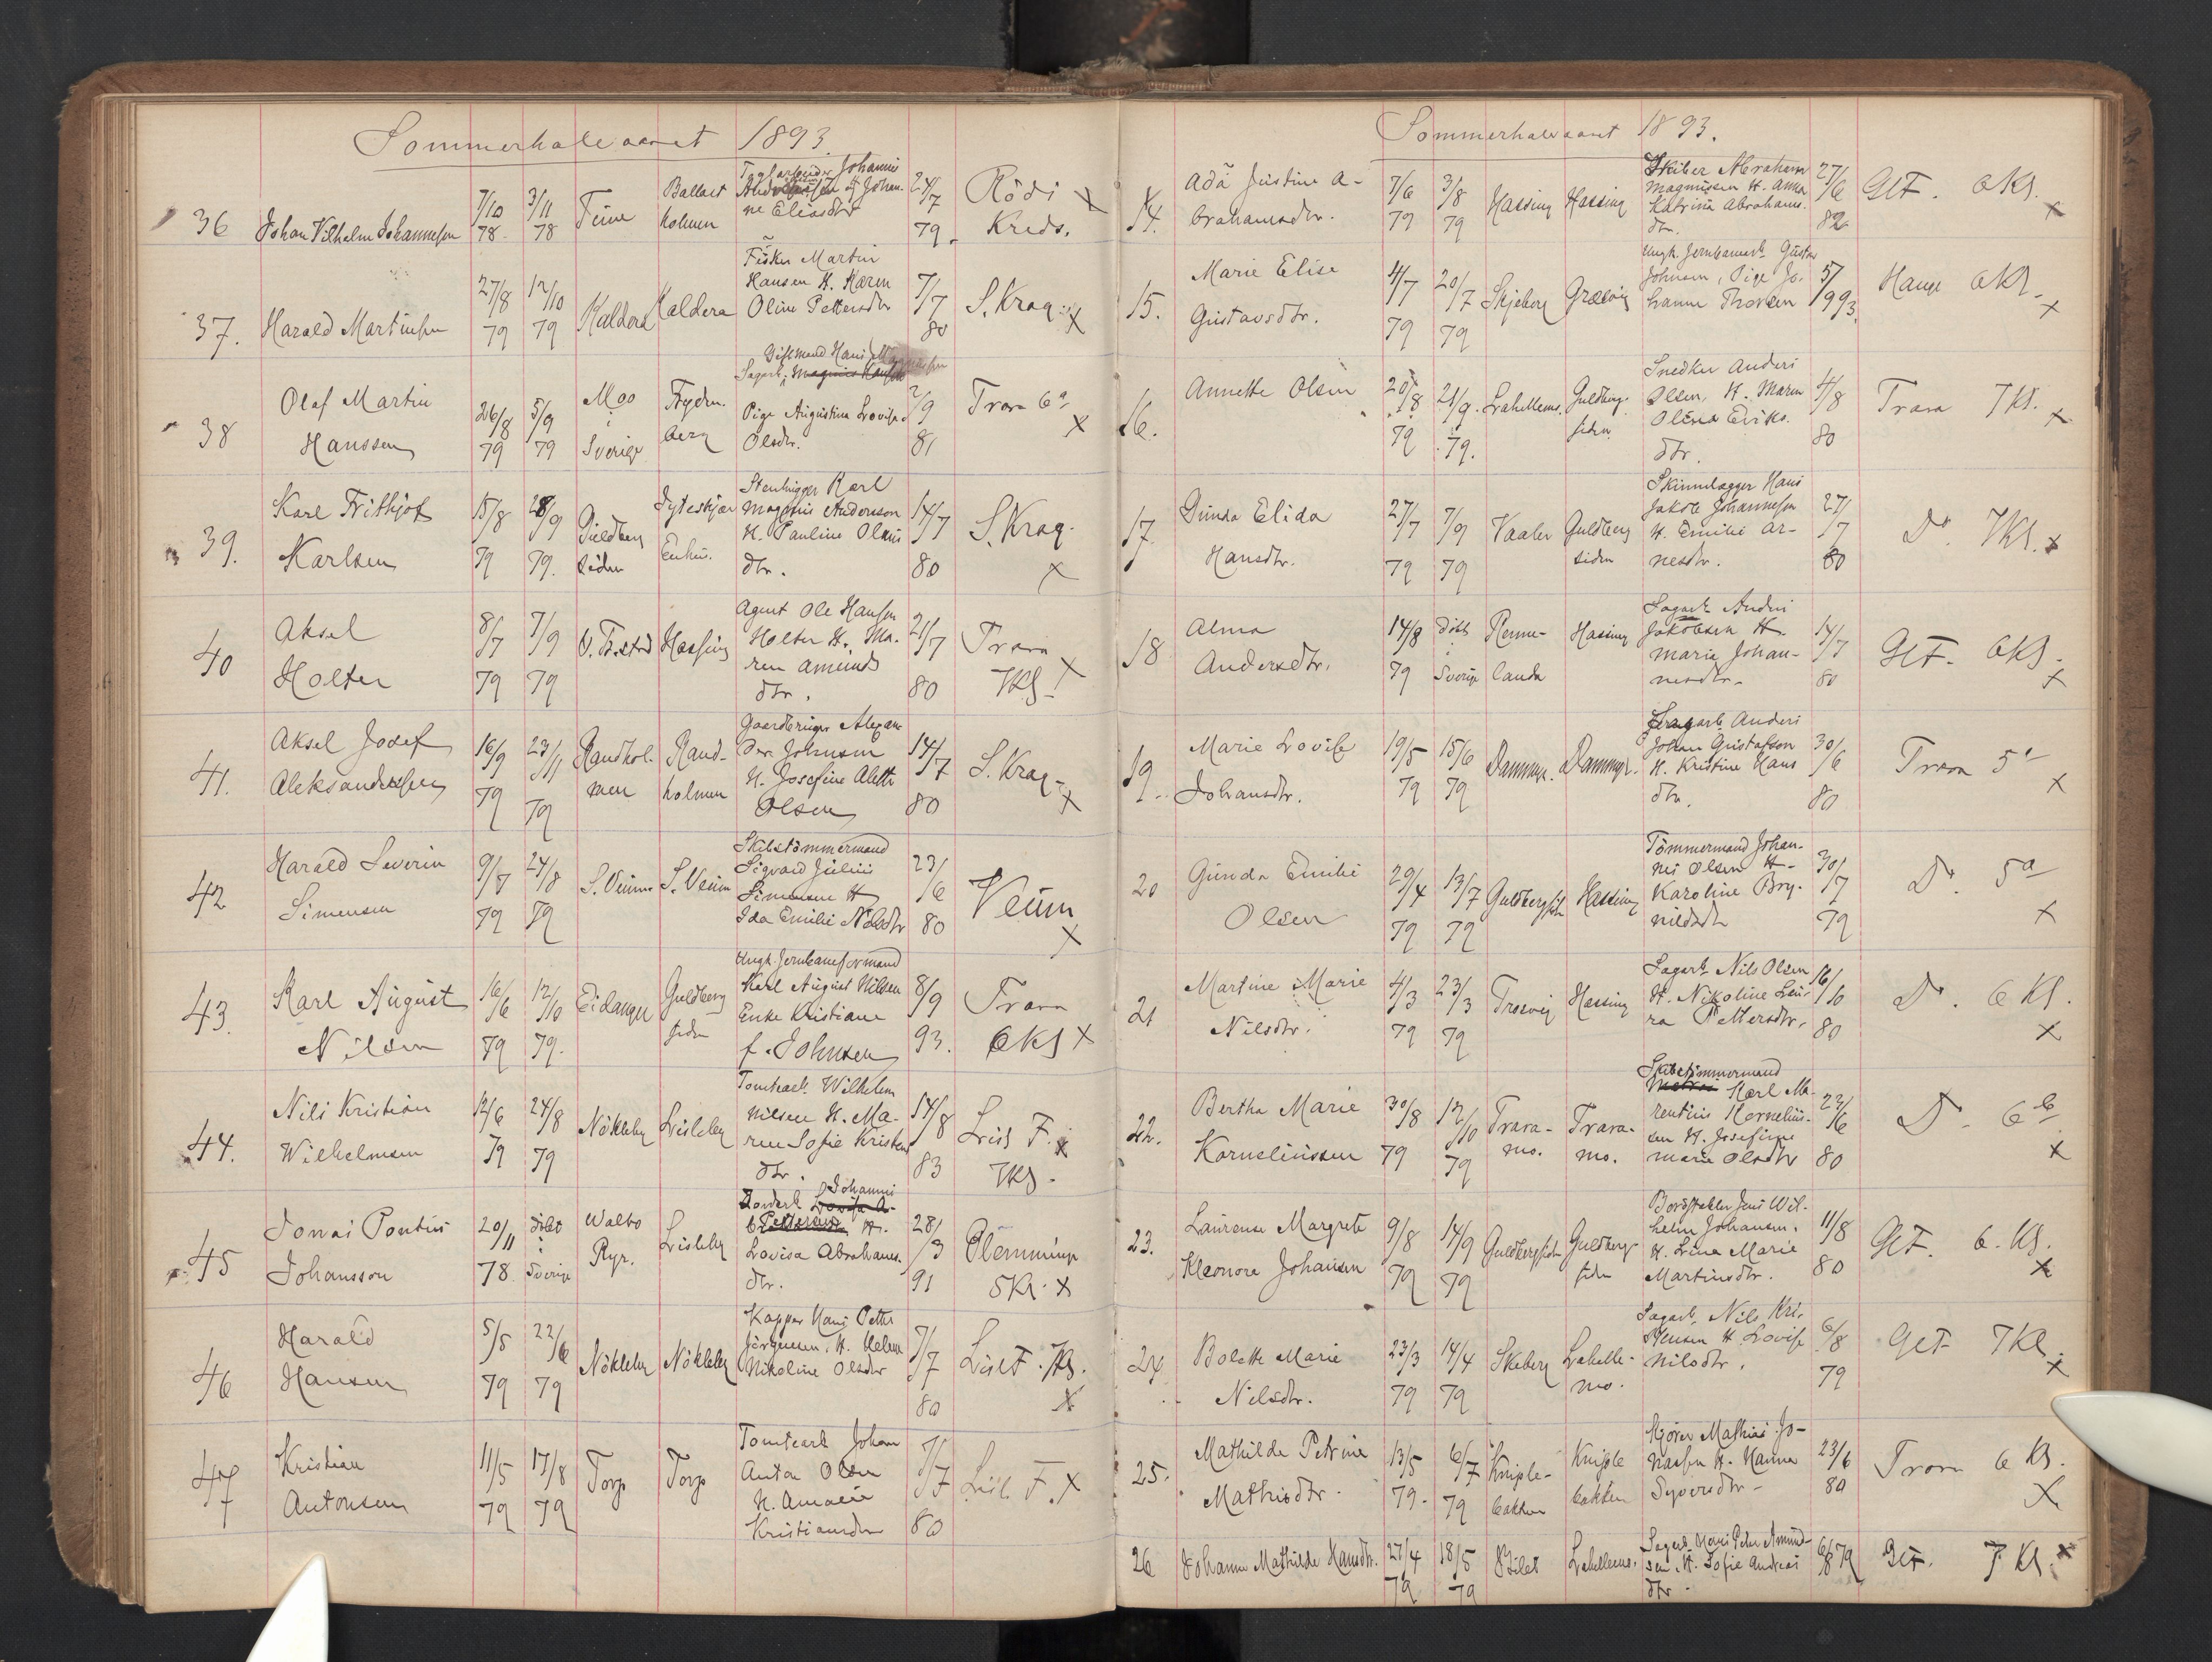 Sommerhalvaaret 1893.
36 Johan Vilhelm Johannessen 7/10 78 3/11 78 Teine Ballast holmen
Johannis
ne Eliasdtr 24/7 79. Rödi Kreds. X
37. Harald Martinsen 27/8 79 12/10 79 Kaldera Kaldera
Fisker Martin
Hansen H. Karen
Oline Pettersdtr 7/7 80 S. Kraq. X
38 Olaf Martin
Hanssen 26/8 79 5/9 79 Mos i Sverige Frydenberg
Giftmand Hans
Pige Augustina Lovise
Olsdtr. 2/9 81 Trara 6a X
39. Karl Frithjof
Karlsen 15/8 79 28/9 79. Guldberg siden
Stenhugger Karl
Magnus Andersson
H. Pauline Olaus
dtr. 14/7 80 S. Kraq. X
40 Aksel
Holter 8/7 79 7/9 79 Hassing
Agent Ole Hansen
Holter H. Ma-
ren Amunds
dtr. 21/7 80 Trara 7Kl. X
41. Aksel Josef
Aleksandersen 16/9 79 23/11 79 Randhol-
men Rand-
holmen
Gaardbruger Alexan
der Johnsen
H. Josefine Alette
Olsen 14/7 80 S. Kraq. X
42 Harald Severin
Simensen 9/7 79 24/8 79 S. Veum S. Veum
Skibstömmermand
Sigvard Julius
Simensen H
Ida Emilie Nilsdtr 23/6 80 Veum X
43. Karl August
Nilsen 16/6 79 12/10 79. Eidanger Guldberg siden
Ungk. Jernbaneformand
Karl August Nilsen
Enke Kristiane
f. Johnsen 8/9 93. Trara 6Kl X
44. Nils Kristian
Wilhelmsen 12/6 79 24/8 79 Nökleby Lisleby
Tomtearb. Wilhelm
Nilsen H. Ma-
ren Sofie Kristens
dtr. 14/8 83 Lisl F. X 7Kl.
45 Jonas Pontus
Johansson 20/11 78. döbt i Sverige Walbo Ryr. Lisleby
Johannes
Petterson H.
Lovisa Abrahams-
dtr. 28/3 91 Glemminge 5Kl. X
46 Harald
Hansen 5/5 79 22/6 79 Nökleby Nökleby
Kapper Hans Petter
Jörgensen. H. Helene
Nikoline Olsdtr 7/7 80 Lisl F. 7Kl. X
47 Kristian
Antonsen 11/5 79 17/8 79 Torp Torp
Tomtearb Johan
Anton Olsen
H. Amalie
Kristiansdtr 7/7 80 Lisl. F. X
Sommerhalvaaret 1893.
14. Ada Justine A-
brahamsdtr. 7/6 79 3/8 79 Hassing Hassing
Skiber Abraham
Magnussen H. Anna
Katrina Abrahams.
dtr. 27/6 82 GlF. 6Kl. X
15. Marie Elise
Gustavsdtr. 4/7 79 20/7 79 Skjeberg Græsvig
Ungk. Jernbanearb. Gustav
Johnsen, Pige Jo-
hanne Thorsen 5/9 93. Hauge 6Kl. X
16. Annette Olsen 20/8 79 21/9. 79. Lahellemo. Guldberg-
siden
Snedker Anders
Olsen, H. Maren
Olina Eriks.
dtr. 4/8 80 Trara 7Kl. X
17. Gunda Elida
Hansdtr. 27/7 79 7/9 79 Vaaler Guldberg
siden
Skinnlægger Hans
Jakob Johannessen
H. Emilie Ar-
nesdtr. 27/7 80 Do. 7Kl. X
18 Alma
Andersdtr. 14/8 79 döbt i Sverige Renne-
landa Hassing
Sagarb. Anders
Jakobsen H.
Marie Johan-
nesdtr. 14/7 80 GlF. 6Kl. X
19. Marie Lovise
Johansdtr. 19/5 79 15/6 79 Dammyr. Dammyr.
Sagarb Anders
Johan Gustafson
H. Kristine Hans
dtr. 30/6 80 Trara 5a X
20 Gunda Emilie
Olsen 29/4 79 13/7 79 Guldbergsiden Hassing
Tömmermand Johan-
nes Olsen H-
Karoline Bry-
nildsdtr 30/7 79 Do. 5a X
21 Martine Marie
Nilsdtr. 4/3 79 23/3 79 Trosvig Hassing
Sagarb. Nils Olsen
H. Nikoline Lau-
ra Pettersdtr. 16/10 80 Do. 6 Kl. X
22. Bertha Marie
Korneliussen 30/8 79 12/10 79 Trara-
mo. Trara-
mo.
Skibstömmermand
Karl Ma-
rentius Kornelius-
sen H. Josefine
Marie Olsdtr 22/6 80 Do. 6b X
23. Laurense Margrete
Kleonore Johansen 9/8 79 14/9 79 Guldbergsiden Guldberg
siden
Bordstabler Jens Wil-
helm Johansen.
H. Lina Marie
Martinsdtr. 11/8 80 GlF. 6. Kl. X
24 Bolette Marie
Nilsdtr. 23/3 79 14/4 79 Skeberg Lahelle-
mo.
Sagarb. Nils Kri-
stensen H. Lovise
Nilsdtr. 6/8 79 GlF 7Kl. X
25. Mathilde Petrine
Mathisdtr. 13/5 79. 6/7 79 Kniple-
bakken Kniple
bakken
Kjörer Mathias Jo-
nassen H. Hanna
Syversdtr. 23/6 80 Trara 6 Kl. X
26 Johanne Mathilde Hansdtr. 27/4 79 18/5 79 Lahellemo.
Sagarb. Hans Peter Amund-
sen. H. Sofie Andreas
dtr. 6/8 79 GlF. 7 Kl. X